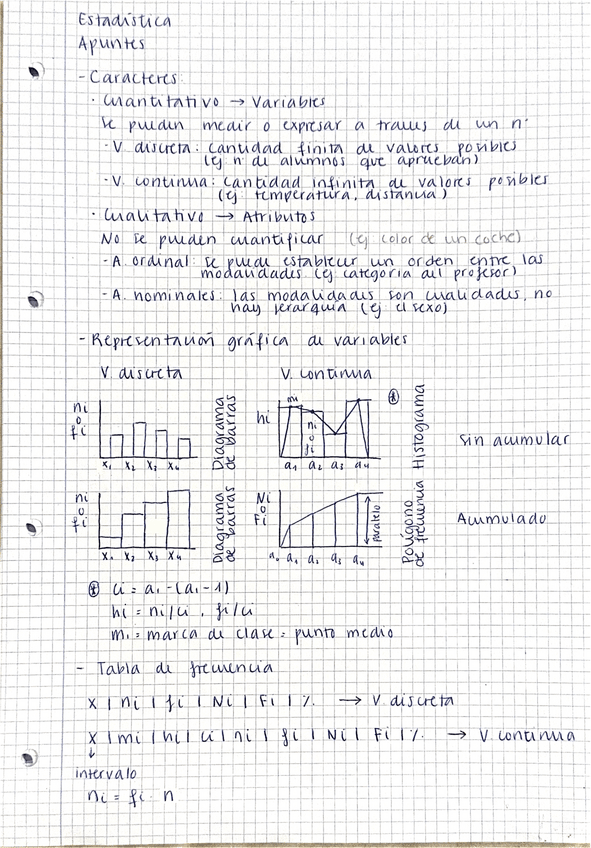 Estadística
Apuntes
- Caracteres:
· Cuantitativo → Variables
Se pueden medir o expresar a traves de un nº
- V discreta: Cantidad finita de valores posibles
(ej nº de alumnos que aprueban)
- V. continua: Cantidad infinita de valores posibles
(ej: temperatura, distancia)
· Cualitativo → Atributos
No se pueden cuantificar (ej color de un coche)
- A. ordinal: se puede establecer un orden entre las
modalidades (ej: categoría del profesor)
- A. nominales: las modalidades son cualidades, no
hay jerarquía (ej el sexo)
- Representación gráfica de variables
V. discreta V. continua
ni
o
fi
x₁ x₂ x₃ x₄
Diagrama
de barras
hi
mi
ni
o
fi
a₁ a₂ a₃ a₄
⊛
Histograma
Sin acumular
ni
o
fi
x₁ x₂ x₃ x₄
Diagrama
de barras
Ni
o
Fi
Paralelo
a₀ a₁ a₂ a₃ a₄
Polígono
de frecuencia
Acumulado
⊛ Ci = ai - (ai - 1)
hi = ni/ci , fi/ci
mi = marca de clase = punto medio
- Tabla de frecuencia
X | ni | fi | Ni | Fi | %. → V discreta
X | mi | hi | ci | ni | fi | Ni | Fi | %. → V. continua
↓
intervalo
ni = fi · n